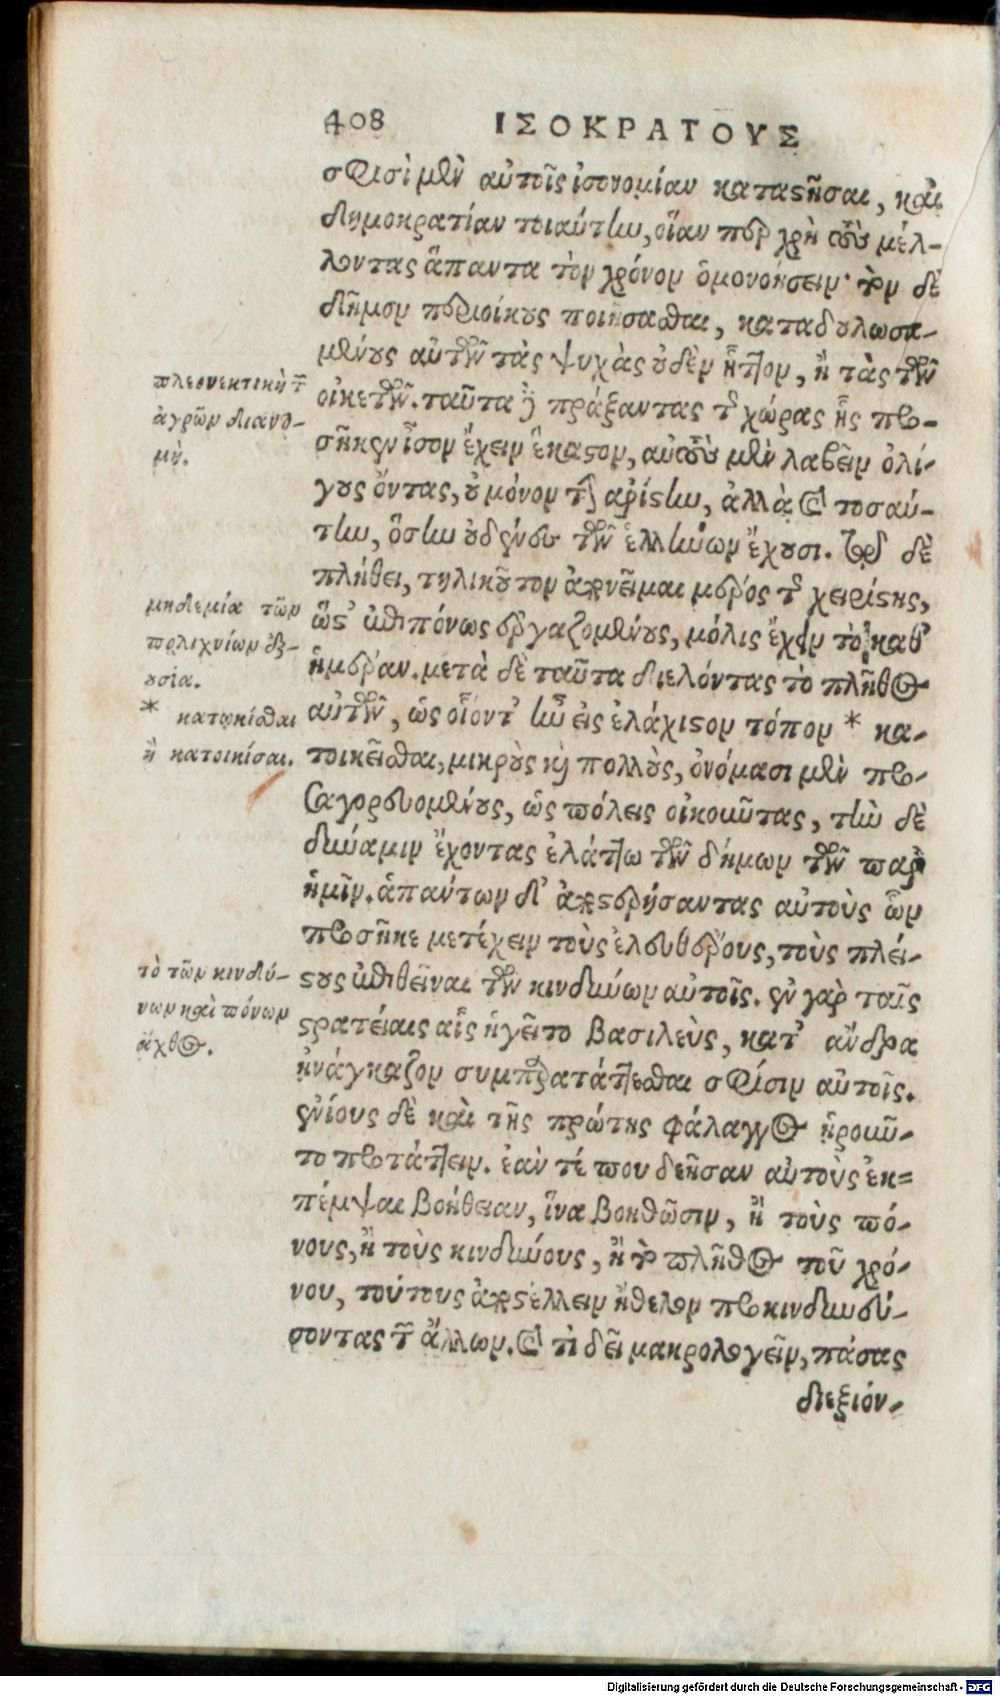 408 ΙΣΟΚΡΑΤΟΥΣ
σφίσι μὲν αὐτοῖς ἰσονομίαν καταστῆσαι, καὶ
δημοκρατίαν τοιαύτην, οἵαν περ χρὴ τοὺς μέλ-
λοντας ἅπαντα τὸν χρόνον ὁμονοήσειν· τὸν δὲ
δῆμον περιοίκους ποιήσασθαι, καταδουλωσα-
μένους αὐτῶν τὰς ψυχὰς οὐδὲν ἧττον, ἢ τὰς τῶν
οἰκετῶν. ταῦτα δὲ πράξαντας τῆς χώρας ἧς προ-
σῆκεν ἴσον ἔχειν ἕκαστον, αὐτοὺς μὲν λαβεῖν ὀλί-
γους ὄντας, οὐ μόνον τὴν ἀρίστην, ἀλλὰ καὶ τοσαύ-
την, ὅσην οὐδένες τῶν ἑλλήνων ἔχουσι. τῷ δὲ
πλήθει, τηλικοῦτον ἀπονεῖμαι μέρος τῆς χειρίστης,
ὥστ' ἐπιπόνως ἐργαζομένους, μόλις ἔχειν τὸ καθ'
ἡμέραν. μετὰ δὲ ταῦτα διελόντας τὸ πλῆθος
αὐτῶν, ὡς οἷόντ' ἦν εἰς ἐλάχιστον τόπον * κα-
τοικεῖσθαι, μικροὺς καὶ πολλοὺς, ὀνόμασι μὲν προ-
σαγορευομένους, ὡς πόλεις οἰκοῦντας, τὴν δὲ
δύναμιν ἔχοντας ἐλάττω τῶν δήμων τῶν παρ'
ἡμῖν. ἁπάντων δ' ἀποστερήσαντας αὐτοὺς ὧν
προσῆκε μετέχειν τοὺς ἐλευθέρους, τοὺς πλεί-
στους ἐπιθεῖναι τῶν κινδύνων αὐτοῖς. ἐν γὰρ ταῖς
στρατείαις αἷς ἡγεῖτο βασιλεὺς, κατ' ἄνδρα
ἠνάγκαζον συμπαρατάττεσθαι σφίσιν αὐτοῖς.
ἐνίους δὲ καὶ τῆς πρώτης φάλαγγος ᾑροῦν-
το προτάττειν. ἐὰν τέ που δεῆσαν αὐτοὺς ἐκ-
πέμψαι βοήθειαν, ἵνα βοηθῶσιν, ἢ τοὺς πό-
νους, ἢ τοὺς κινδύνους, ἢ τὸ πλῆθος τοῦ χρό-
νου, τούτους ἀποστέλλειν ἤθελον προκινδυνεύ-
σοντας τῶν ἄλλων. καὶ τὶ δεῖ μακρολογεῖν, πάσας
διεξιόν-
πλεονεκτικὴ τῶν
ἀγρῶν διανο-
μὴ.
μηδεμία τῶν
πολιχνίων ἐξ-
ουσία.
* κατῳκίσθαι
ἢ κατοικίσαι.
τὸ τῶν κινδύ-
νων καὶ πόνων
ἄχθος.
Digitalisierung gefördert durch die Deutsche Forschungsgemeinschaft - DFG